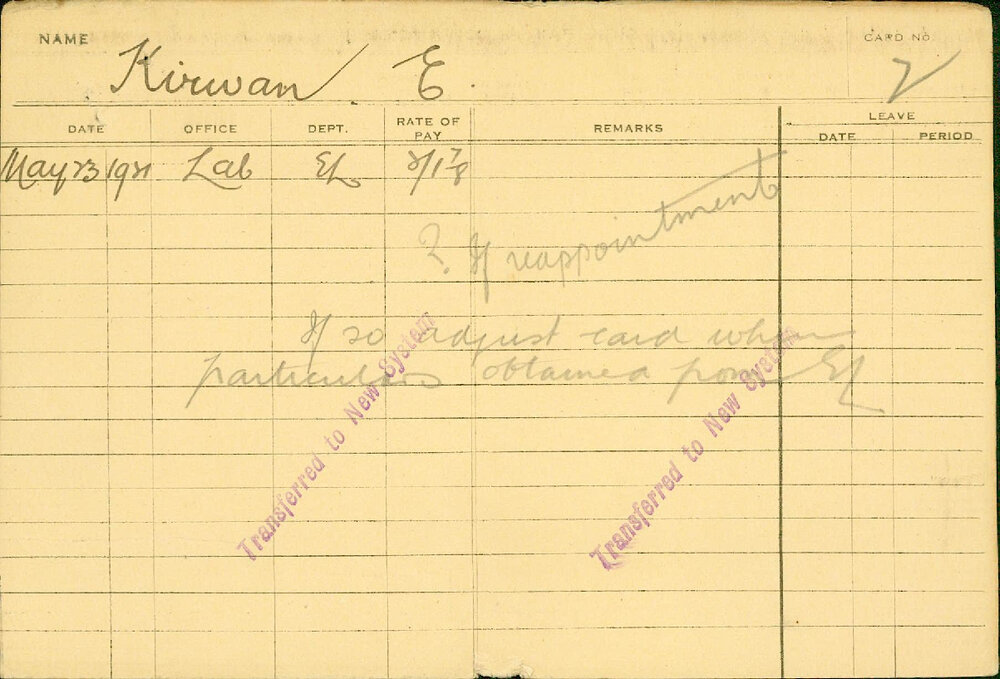 NAME Kirwan E. CARD NO. 2
LEAVE
DATE OFFICE DEPT. RATE OF PAY REMARKS DATE PERIOD
May 23 1921 Lab EL
?. If reappointment
If so adjust card when
particulars obtained from EL
Transferred to New System
Transferred to New System